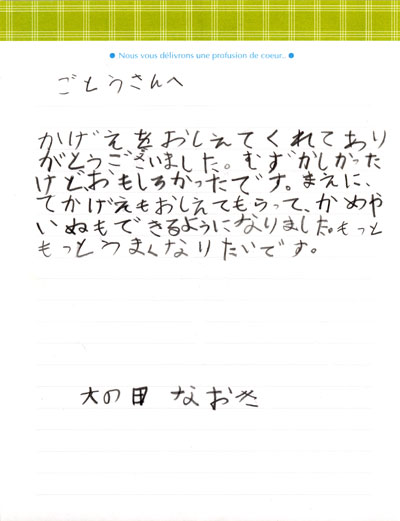 ● Nous vous délivrons une profusion de coeur.. ●
ごとうさんへ
かげえをおしえてくれてあり
がとうございました。むずかしかった
けど、おもしろかったです。まえに、
てかげえもおしえてもらって、かめや
いぬもできるようになりました。もっと
もっとうまくなりたいです。
大の田 なおき